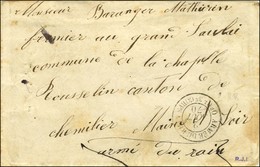 Monsieur Baranger Mathurin
fermier au grand Saulai
commune de la chapelle
Rousselin canton de
chemillier Maine et Loir
armé du
R.J.I.